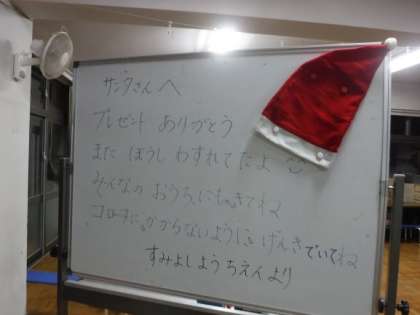 サンタさんへ
プレゼント ありがとう
また ぼうし わすれてたよ
みんなの おうちにも きてね
コロナに かからないように げんきでいてね
すみよしようちえん より